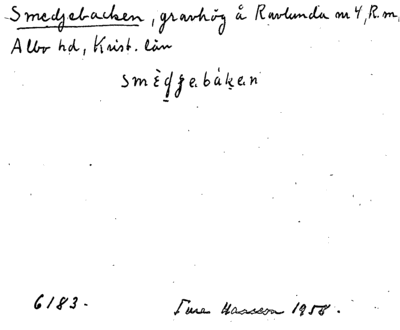 Smedjebacken, gravhög å Ravlunda nr 4, R.m,
Albo hd, Krist. län
smèd̠ʝebák̬en
6183. Ture Hansson 1958.